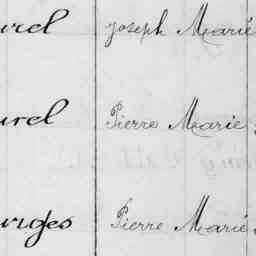 urel Joseph Marie
urel Pierre Marie
urges Pierre Marié